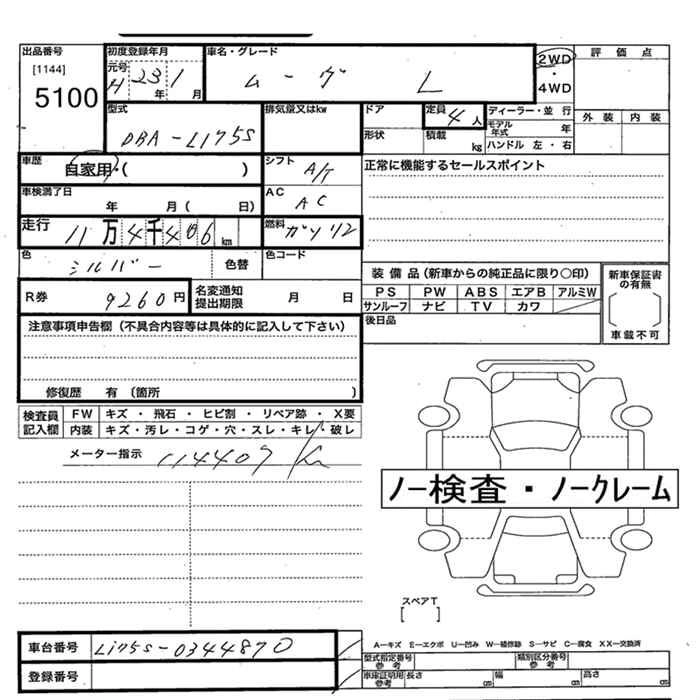 出品番号 初度登録年月 車名・グレード 2WD 評価点
[1144] 元号 H 23年 1月 ムーヴ L ・
5100 4WD
型式 排気量又はkw ドア 定員 4人 ディーラー・並行 外装 内装
DBA-L175S 形状 積載 kg モデル年式 年
ハンドル 左・右
車歴 自家用・( ) シフト A/T 正常に機能するセールスポイント
車検満了日 年 月( 日) AC AC
走行 11万4千406km 燃料 ガソリン
色 シルバー 色替 色コード
装備品(新車からの純正品に限り○印) 新車保証書の有無
R券 9260円 名変通知提出期限 月 日 PS PW ABS エアB アルミW
サンルーフ ナビ TV カワ
注意事項申告欄(不具合内容等は具体的に記入して下さい) 後日品 車載不可
修復歴 有(箇所 )
検査員記入欄 FW キズ・飛石・ヒビ割・リペア跡・X要
内装 キズ・汚レ・コゲ・穴・スレ・キレ・破レ
メーター指示 114407 km
ノー検査・ノークレーム
スペアT
[ ]
車台番号 L175S-0344870 A-キズ E-エクボ U-凹み W-補修跡 S-サビ C-腐食 XX-交換済
型式指定番号 参考 類別区分番号 参考
登録番号 車庫証明用 参考 長さ cm 幅 cm 高さ cm